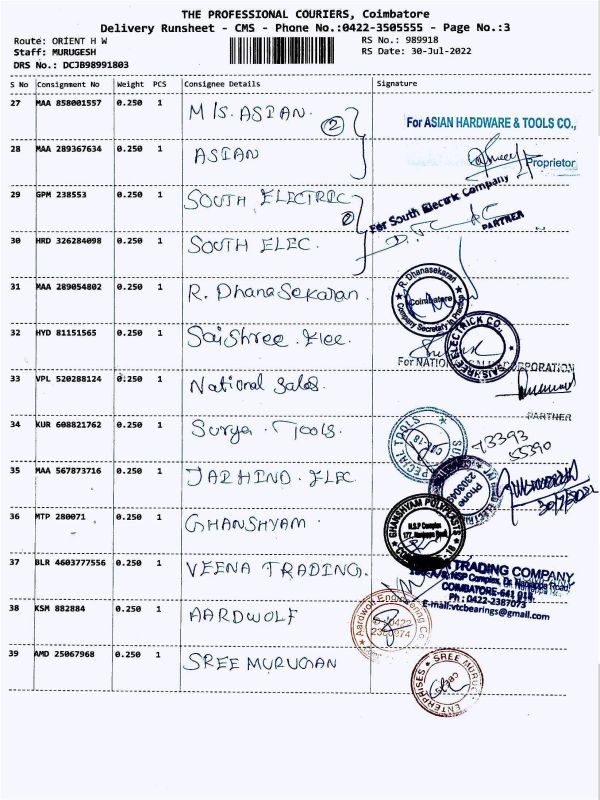 THE PROFESSIONAL COURIERS, Coimbatore
Delivery Runsheet - CMS - Phone No.:0422-3505555 - Page No.:3
Route: ORIENT H W
RS No.: 989918
Staff: MURUGESH
RS Date: 30-Jul-2022
DRS No.: DCJB98991803
S No Consignment No Weight PCS Consignee Details Signature
27 MAA 858001557 0.250 1 M/S. ASIAN. (2)
For ASIAN HARDWARE & TOOLS CO.,
28 MAA 289367634 0.250 1 ASIAN
Proprietor
29 GPM 238553 0.250 1 SOUTH ELECTRIC (2)
For South Electric Company
PARTNER
30 HRD 326284098 0.250 1 SOUTH ELEC.
31 MAA 289054802 0.250 1 R. DhanaSekaran.
R. Dhanasekaran
Coimbatore
Company Secretary in Practice
32 HYD 81151565 0.250 1 SaiShree. Elec.
SAISHREE ELECTRICK CO.,
For NATIONAL SALES CORPORATION
33 VPL 520288124 0.250 1 National Sales.
PARTNER
34 KUR 608821762 0.250 1 Surya. Tools.
SPECIAL TOOLS
CBE-18
73393
55390
35 MAA 567873716 0.250 1 JAIHIND. ELEC
Phone
30/7/2022
36 MTP 280071 0.250 1 GHANSHYAM.
GHANSHYAM POLYPLASTS
N.S.P Complex
177, Nanjappa Road,
37 BLR 4603777556 0.250 1 VEENA TRADING.
TRADING COMPANY
NSP Complex, Dr. Nanjappa Road,
COIMBATORE-641 018.
Ph : 0422-2387073
E-mail:vtcbearings@gmail.com
38 KSM 882884 0.250 1 AARDWOLF
Aardwolf Engineering Co
0422
39 AMD 25067968 0.250 1 SREE MURUGAN
SREE MURUGAN ENTERPRISES